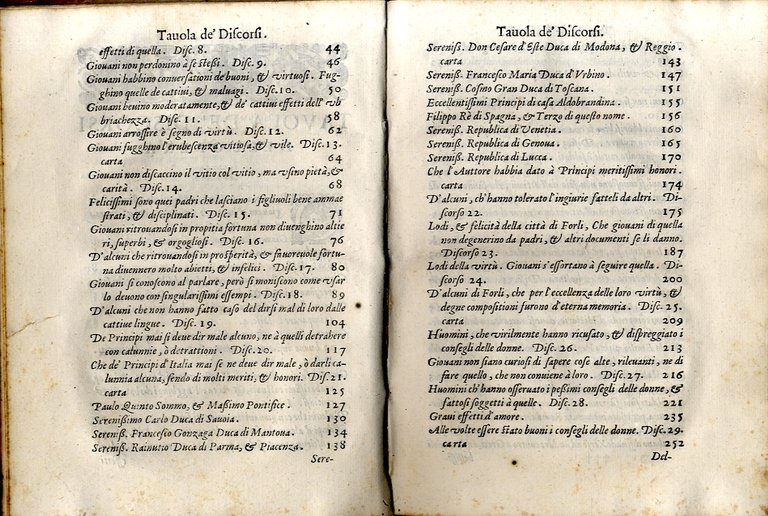 Tauola de' Discorsi.
effetti di quella. Disc. 8. 44
Giouani non perdonino à se steßi. Disc. 9. 46
Giouani habbino conuersationi de buoni, & virtuosi. Fug-
ghino quelle de cattiui, & maluagi. Disc. 10. 50
Giouani beuino moderatamente, & de' cattiui effetti dell' vb
briachezza. Disc. 11. 58
Giouani arrossire è segno di virtù. Disc. 12. 62
Giouani fugghino l'erubescenza vitiosa, & vile. Disc. 13.
carta 64
Giouani non discaccino il vitio col vitio, ma vsino pietà, &
carità. Disc. 14. 68
Felicissimi sono quei padri che lasciano i figliuoli bene ammae
strati, & disciplinati. Disc. 15. 71
Giouani ritrouandosi in propitia fortuna non diuenghino altie
ri, superbi, & orgogliosi. Disc. 16. 76
D'alcuni che ritrouandosi in prosperità, & fauoreuole fortu-
na diuennero molto abietti, & infelici. Disc. 17. 80
Giouani si conoscono al parlare, però si moniscono come vsar
lo deuono con singularissimi essempi. Disc. 18. 89
D'alcuni che non hanno fatto caso del dirsi mal di loro dalle
cattiue lingue. Disc. 19. 104
De Principi mai si deue dir male alcuno, ne à quelli detrahere
con calunnie, ò detrattioni. Disc. 20. 117
Che de' Principi d'Italia mai se ne deue dir male, ò darli ca-
lunnia alcuna, sendo di molti meriti, & honori. Disc. 21.
carta 125
Paulo Quinto Sommo, & Maßimo Pontifice. 127
Serenißimo Carlo Duca di Sauoia. 130
Sereniß. Francesco Gonzaga Duca di Mantoua. 134
Sereniß. Rainutio Duca di Parma, & Piacenza. 138
Sere-
Tauola de' Discorsi.
Sereniß. Don Cesare d'Este Duca di Modona, & Reggio.
carta 143
Sereniß. Francesco Maria Duca d'Vrbino. 147
Sereniß. Cosino Gran Duca di Toscana. 151
Eccellentissimi Principi di casa Aldobrandina. 155
Filippo Rè di Spagna, & Terzo di questo nome. 156
Sereniß. Republica di Venetia. 160
Sereniß. Republica di Genoua. 165
Sereniß. Republica di Lucca. 170
Che l'Auttore habbia dato à Principi meritissimi honori.
carta 174
D'alcuni, ch'hanno tolerato l'ingiurie fatteli da altri. Di-
scorso 22. 175
Lodi, & felicità della città di Forlì, Che giouani di quella
non degenerino da padri, & altri documenti se li danno.
Discorso 23. 187
Lodi della virtù. Giouani s'essortano à seguire quella. Di-
scorso 24. 200
D'alcuni di Forlì, che per l'eccellenza delle loro virtù, &
degne compositioni furono d'eterna memoria. Disc. 25.
carta 209
Huomini, che virilmente hanno ricusato, & dispreggiato i
consegli delle donne. Disc. 26. 213
Giouani non siano curiosi di sapere cose alte, rileuanti, ne di
fare quello, che non conuiene à loro. Disc. 27. 216
Huomini ch'hanno osseruato i peßimi consegli delle donne, &
fattosi soggetti à quelle. Disc. 28. 221
Graui effetti d'amore. 235
Alle volte essere stato buoni i consegli delle donne. Disc. 29.
carta 252
Del-